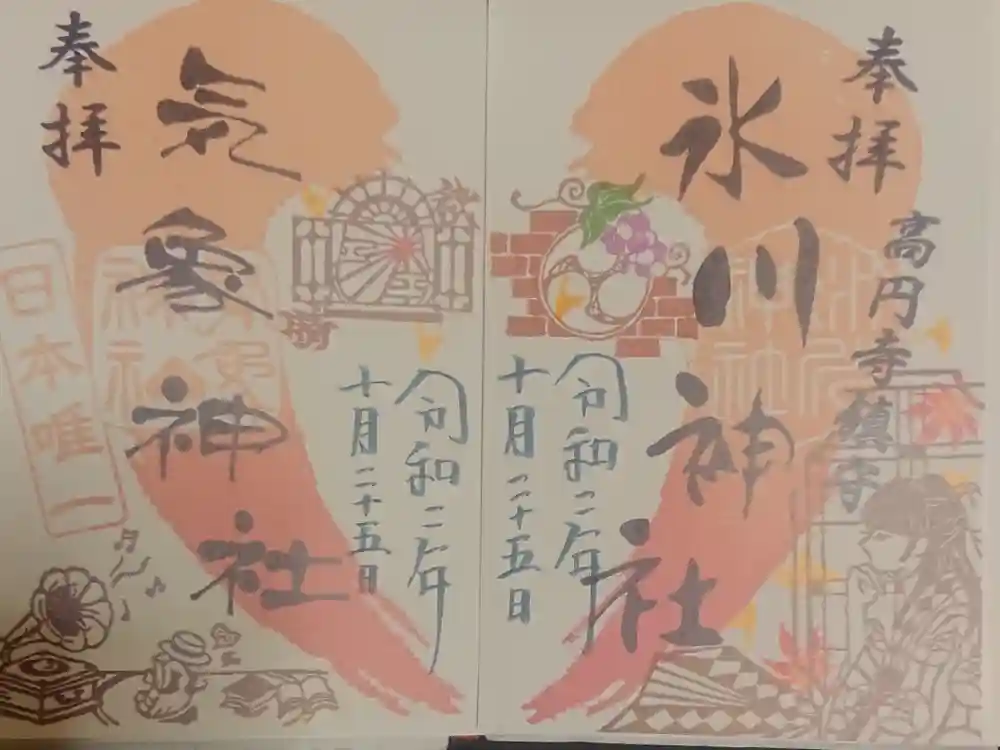 奉拝
高円寺鎮守
氷川神社
令和二年
十月二十五日
令和二年
十月二十五日
気象神社
奉拝
日本唯一
晴